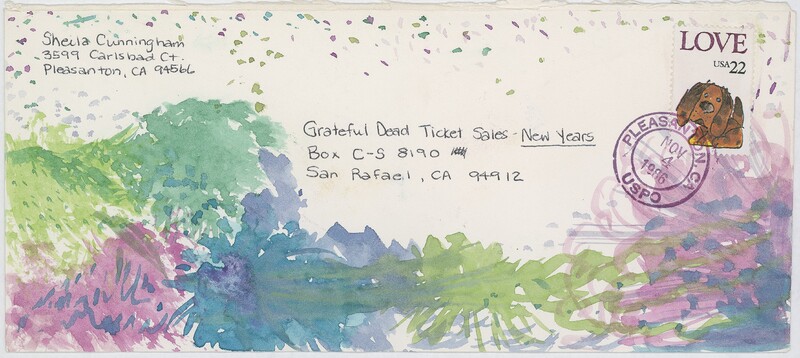 Sheila Cunningham
3599 Carlsbad Ct.
Pleasanton, CA 94566
Grateful Dead Ticket Sales - New Years
Box C-S 8190
San Rafael, CA 94912
LOVE
USA 22
PLEASANTON CA
NOV
4
1986
USPO